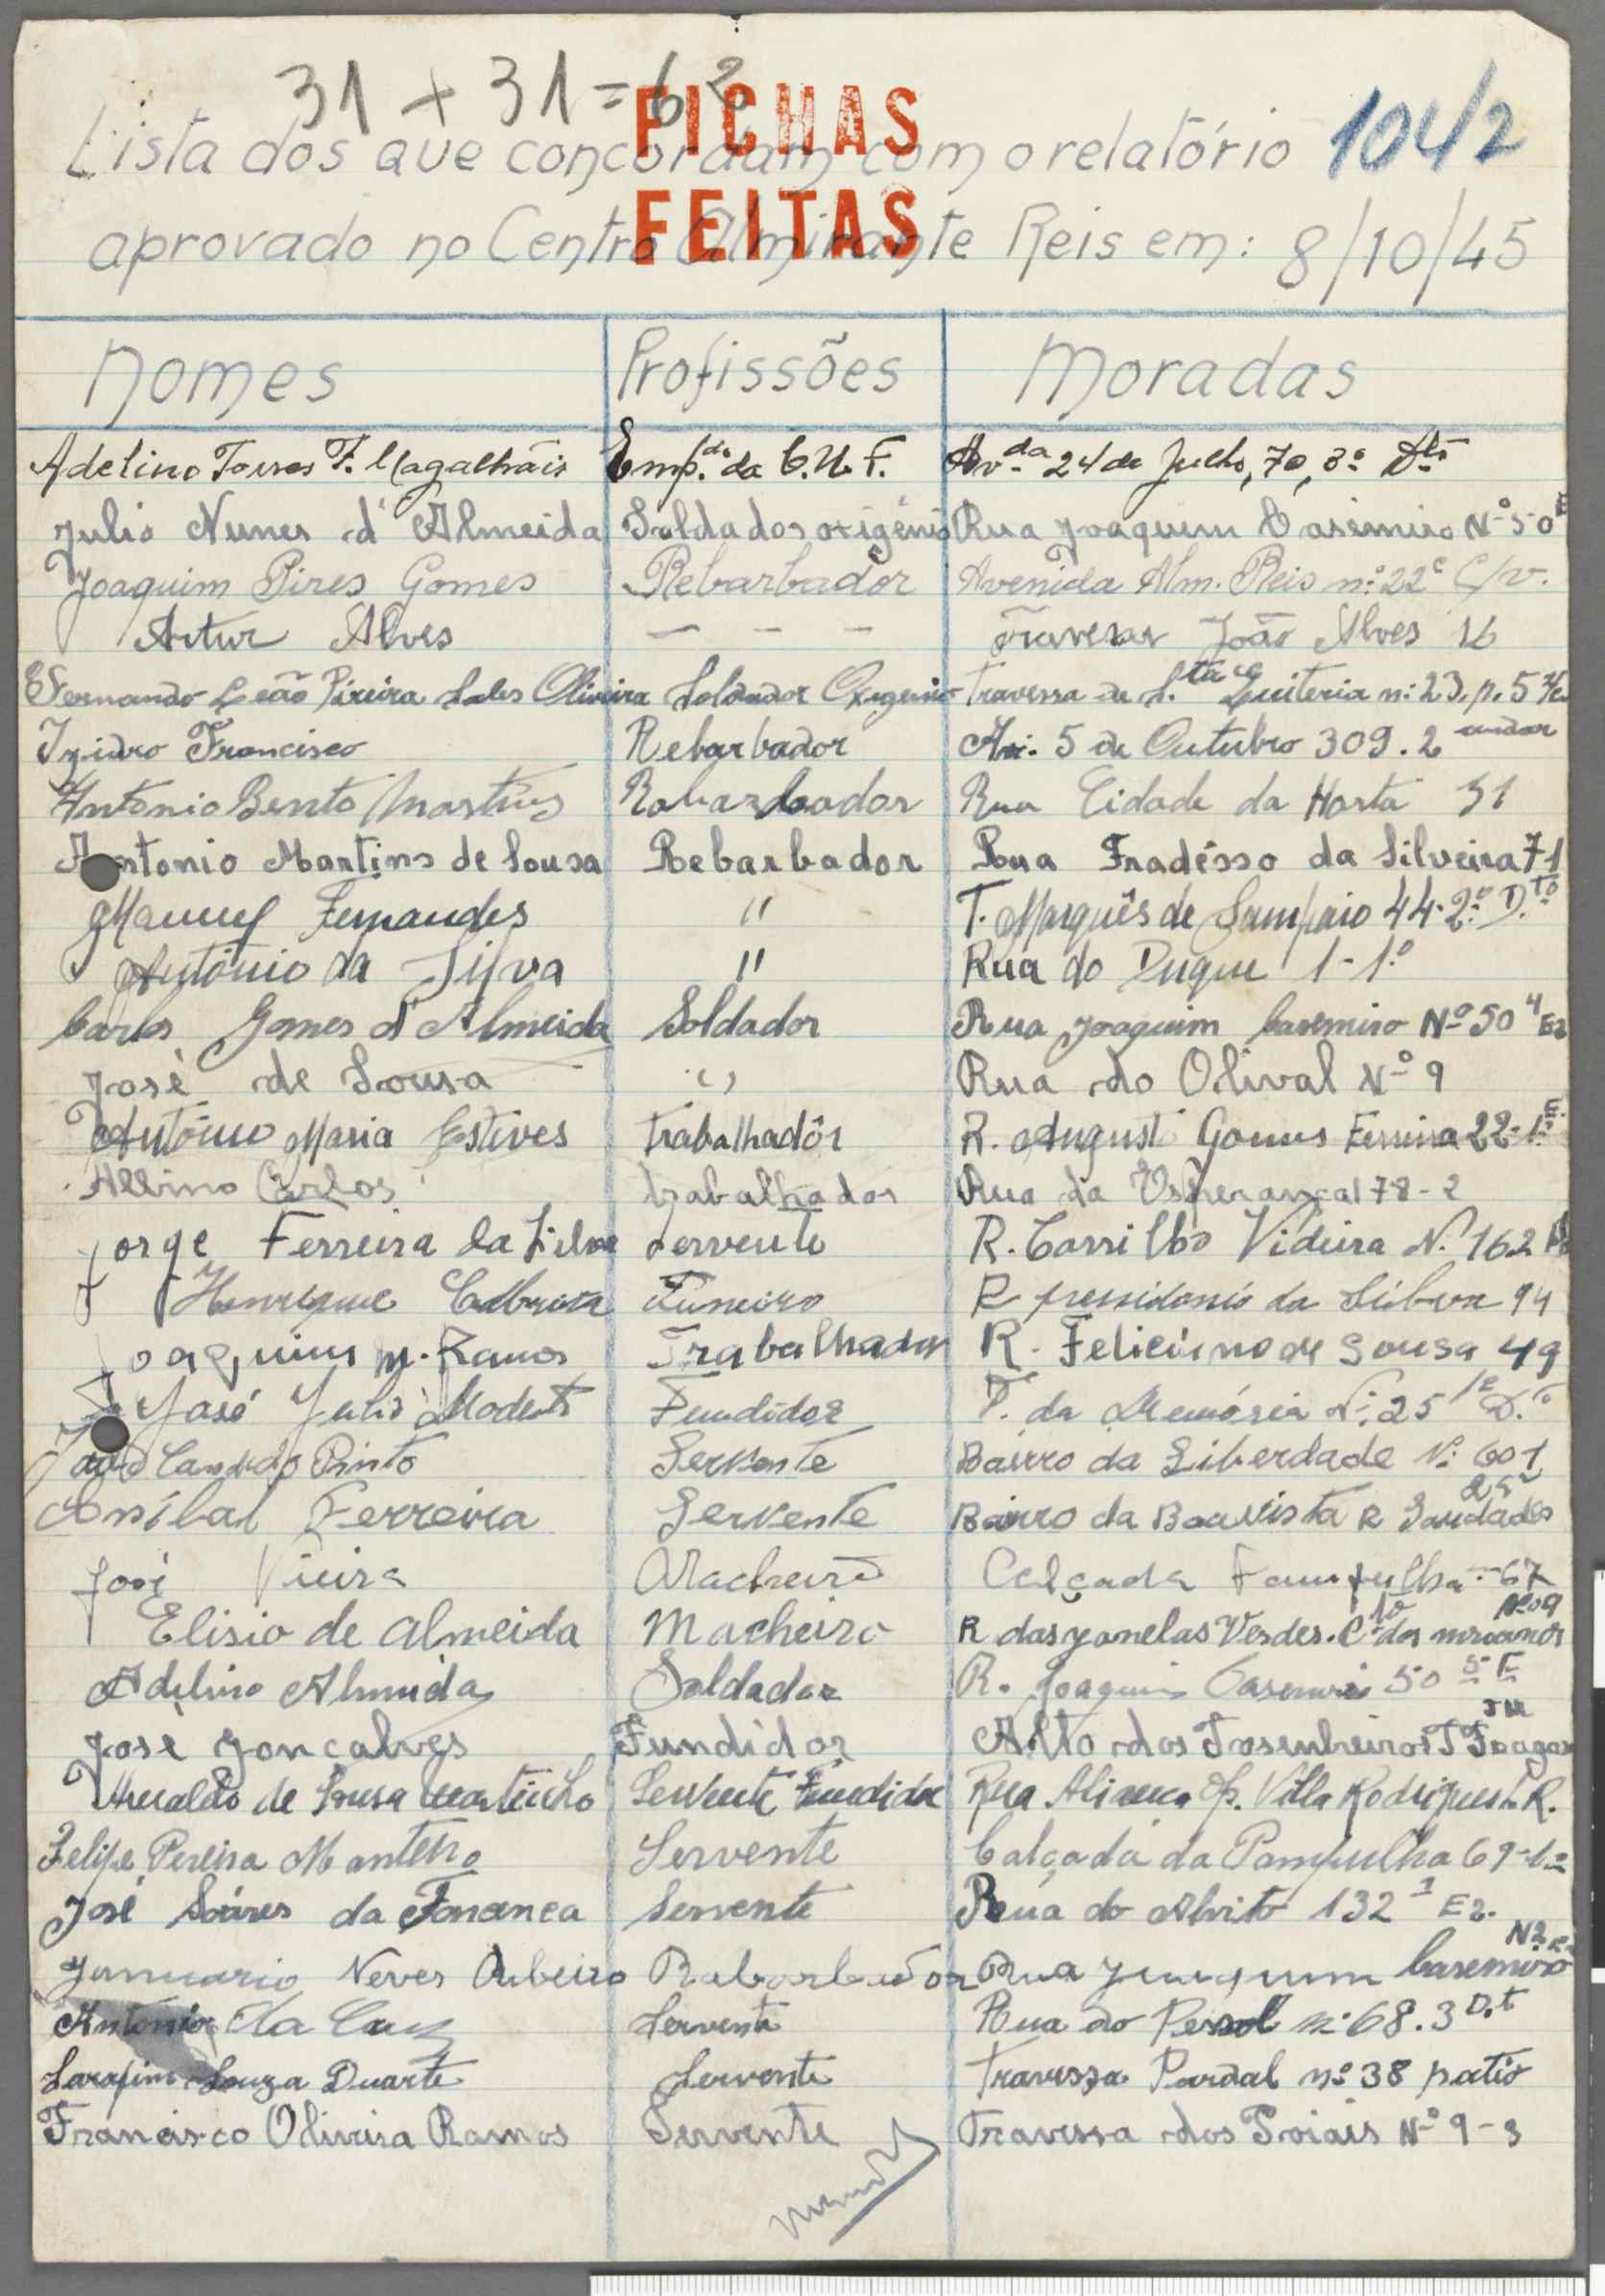 31 + 31 = 62
FICHAS
FEITAS
104/2
Lista dos que concordam com o relatório
aprovado no Centro Almirante Reis em: 8/10/45
Nomes Profissões Moradas
Adelino Torres F. Magalhãis Emp.do da C.U.F. Av.da 24 de Julho, 70, 3º Dto
Julio Nunes d'Almeida Soldador oxigénio Rua Joaquim Casimiro Nº 50
Joaquim Pires Gomes Rebarbador Avenida Alm. Reis n.º 22 C/v.
Artur Alves — — — Travessa João Alves 16
Fernando Leão Pixeira Sales Oliveira Soldador Oxigenio Travessa de S.ta Quiteria n.º 23, p. 5
Izidro Francisco Rebarbador Av. 5 de Outubro 309. 2 andar
Antonio Bento Martins Rabarbador Rua Cidade da Horta 31
Antonio Martins de Sousa Rebarbador Rua Fradésso da Silveira 71
Manuel Fernandes " T. Marquês de Sampaio 44-2º D.to
António da Silva " Rua do Duque 1-1º
Carlos Gomes d'Almeida Soldador Rua Joaquim Casemiro Nº 50 4 Ez
José de Sousa " Rua do Olival Nº 9
António Maria Esteves trabalhadôr R. Augusto Gomes Ferreira 22-1º E
Albino Carlos trabalhador Rua da Esperança 178-2
Jorge Ferreira da Silva servente R. Carrilho Videira N. 162
Henrique Funeiro R da Silva 94
Joaquim M. Ramos Trabalhador R. Feliciano de Sousa 49
José Julio Modesto Fundidor T. da Memória Nº 25 D.to
João Candido Pinto Servente Bairro da Liberdade Nº 601
Anibal Ferreira Servente Bairro da Boavista R Saudades 25
José Vieira Macheiro Calçada Pampulha 67
Elisio de Almeida Macheiro R das Janelas Verdes. dos Nº 9
Adelino Almeida Soldador R. Joaquim Casemiro 50 5º E
José Gonçalves Fundidor Alto dos
de Sousa Martinho Servente Fundidor Rua Aliança Op. Villa Rodrigues
Felipe Pereira Monteiro Servente Calçada da Pampulha 69-1º
José Soáres da Fonceca Servente Rua do Alvito 132 1 Ez.
Januario Neves Ribeiro Rabarbador Rua Joaquim Casemiro
António da Cruz Servente Rua do n.º 68. 3 D.t
Serafim Souza Duarte Servente Travessa Pardal nº 38 patio
Francisco Oliveira Ramos Servente Travessa dos Poiais Nº 9-3